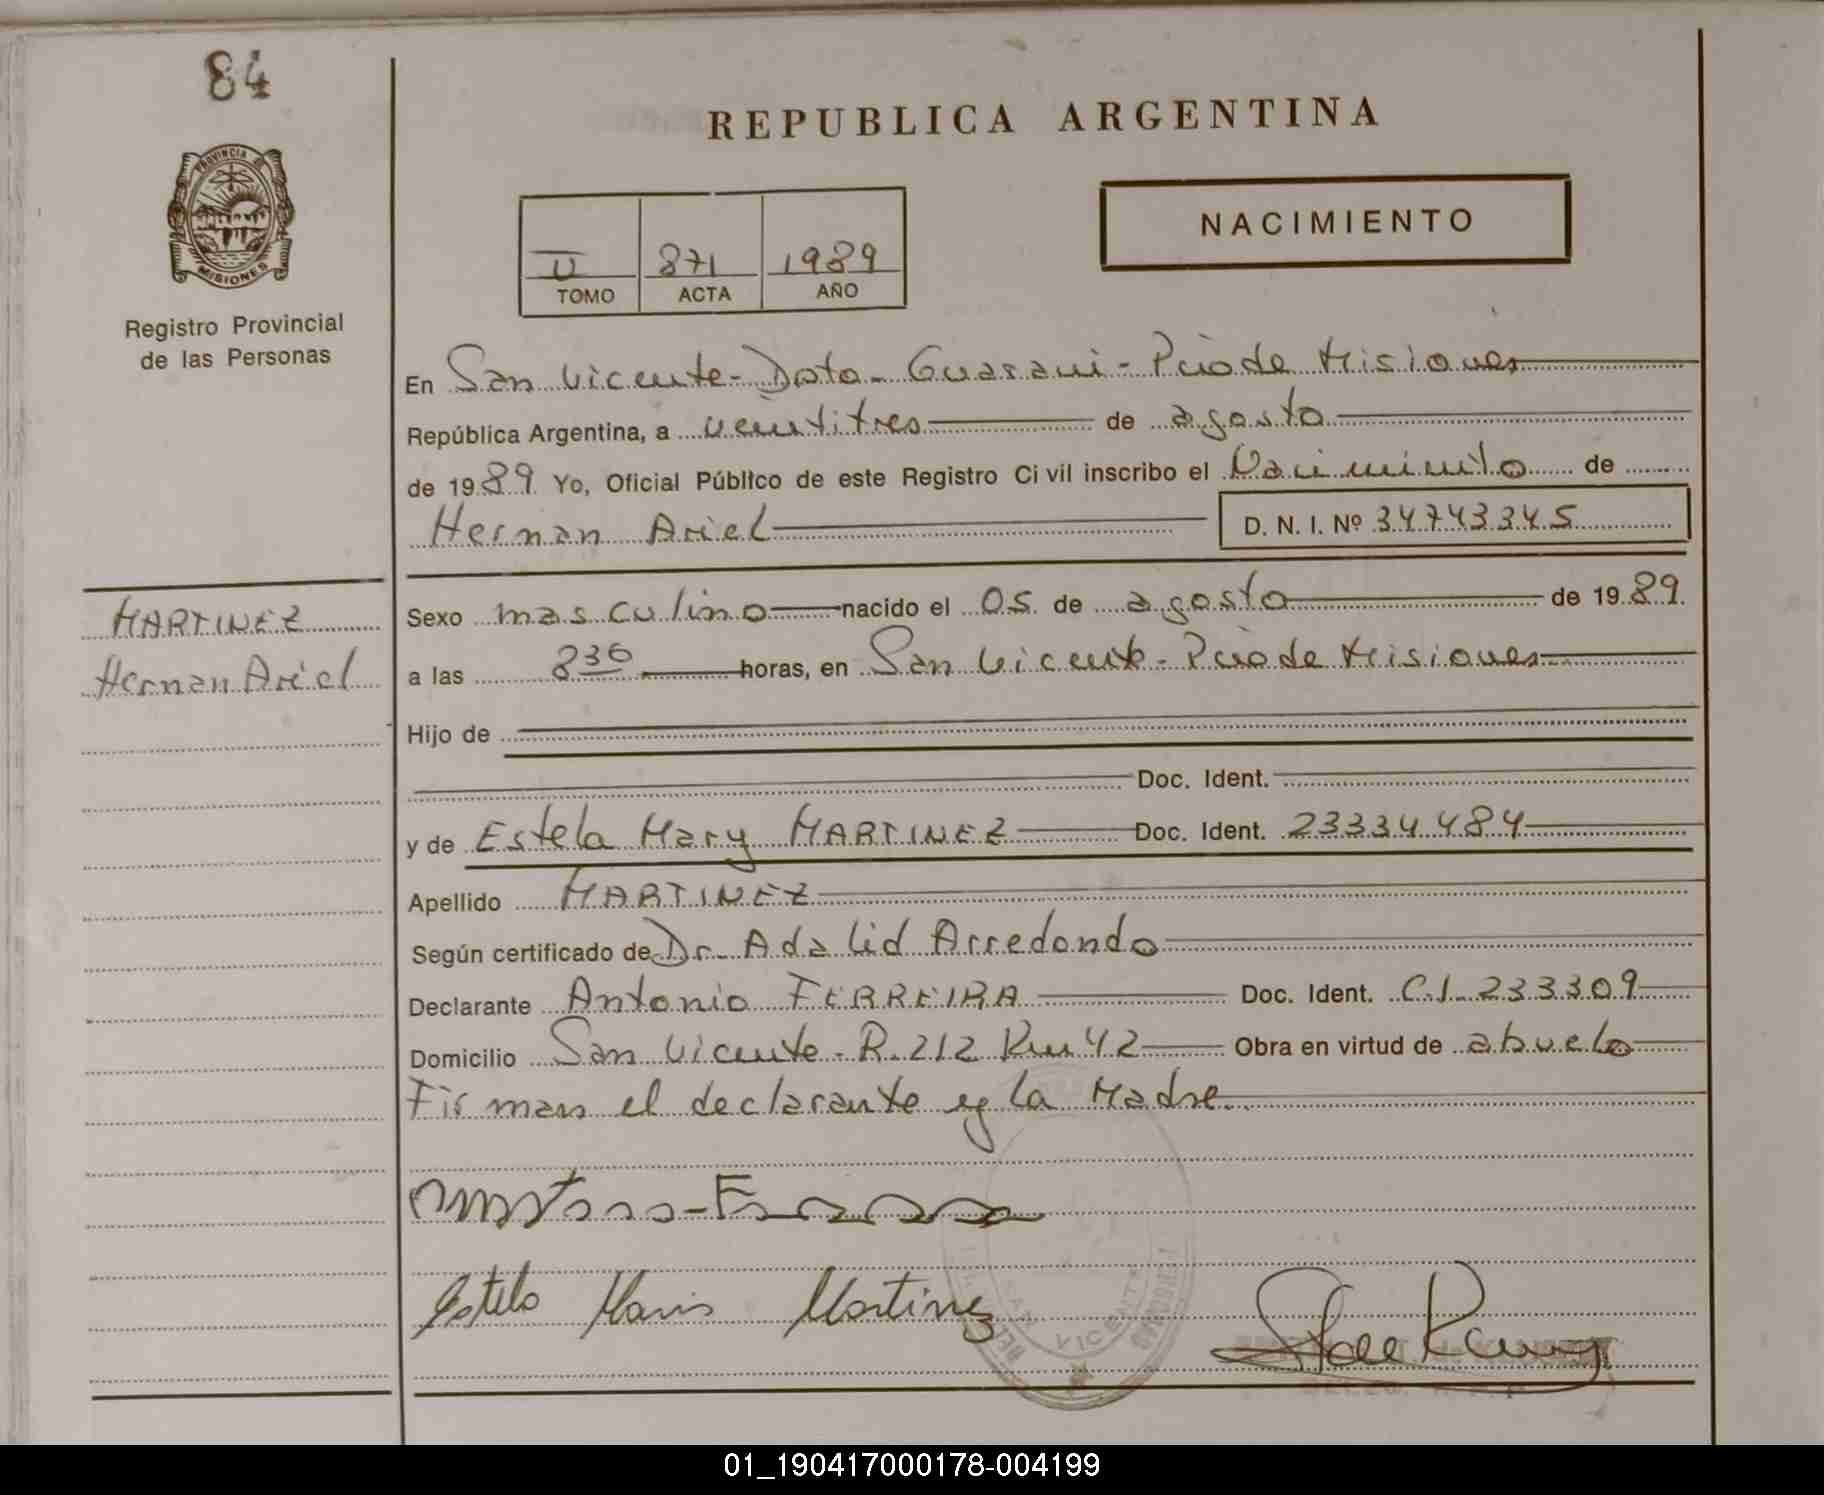 84
REPUBLICA ARGENTINA
PROVINCIA DE
MISIONES
Registro Provincial
de las Personas
NACIMIENTO
II 871 1989
TOMO ACTA AÑO
En San Vicente - Dpto - Guarani - Pcia de Misiones
República Argentina, a veintitres de agosto
de 1989. Yo, Oficial Público de este Registro Civil inscribo el Nacimiento de
Hernan Ariel D. N. I. Nº 34743345
MARTINEZ
Hernan Ariel
Sexo masculino nacido el 05 de agosto de 1989.
a las 8 30 horas, en San Vicente - Pcia de Misiones
Hijo de
Doc. Ident.
y de Estela Mary MARTINEZ Doc. Ident. 23334484
Apellido MARTINEZ
Según certificado de Dr. Adalid Arredondo
Declarante Antonio FERREIRA Doc. Ident. C.I. 233309
Domicilio San Vicente - R. 212 Km 42 Obra en virtud de abuelo
Firman el declarante y la Madre.
Estela Maris Martinez
SAN VICENTE
01_190417000178-004199